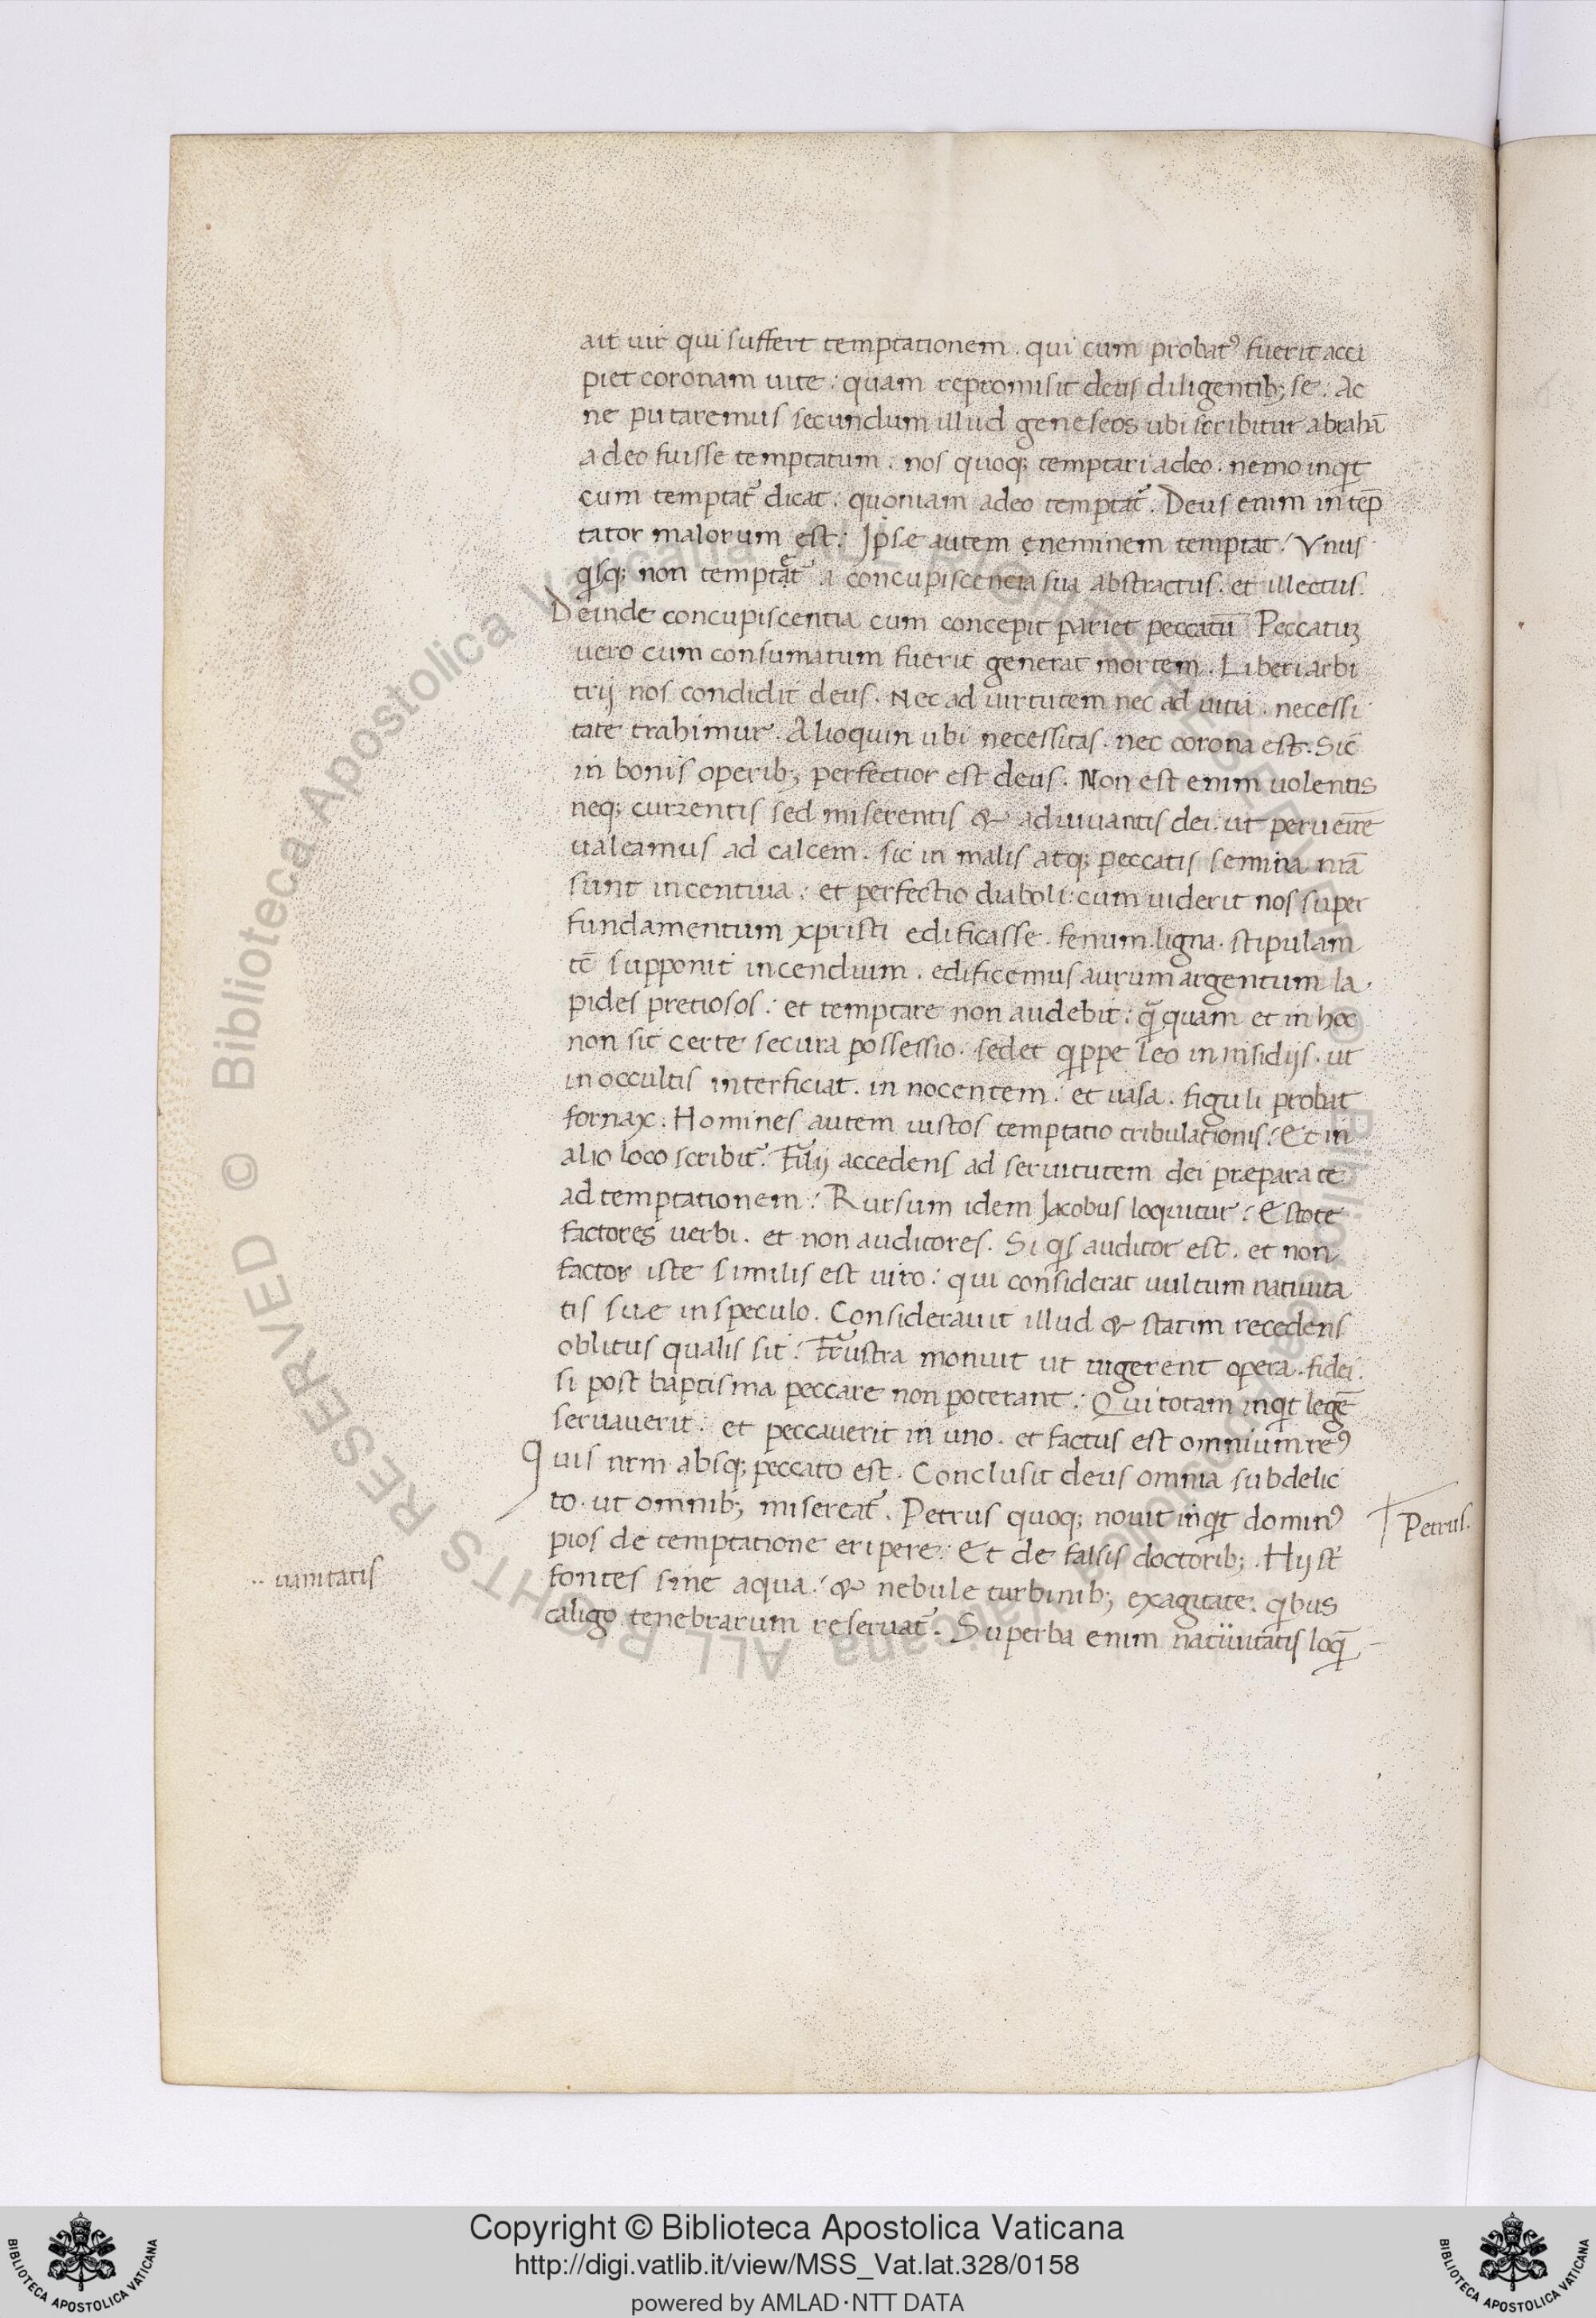 ait uir qui suffert temptationem. qui cum probatꝰ fuerit acci
piet coronam uite: quam repromisit deus diligentib; se. Ac
ne putaremus secundum illud geneseos ubi scribitur abrahā
adeo fuisse temptatum. nos quoq; temptari adeo. nemo inqt
cum temptat᷑ dicat: quoniam adeo temptat᷑. Deus enim intēp
tator malorum est: Ipse autem neminem temptat: Vnus
qsq; non temptat᷑ a concupiscencia sua abstractus. et illectus.
Deinde concupiscentia cum concepit pariet peccatū Peccatuꝫ
uero cum consumatum fuerit generat mortem. Liberi arbi
trij nos condidit deus. Nec ad uirtutem nec ad uitia. necessi
tate trahimur. Alioquin ubi necessitas. nec corona est. Sic
in bonis operib; perfectior est deus. Non est enim uolentis
neq; currentis sed miserentis & adiuuantis dei. ut peruenire
ualeamus ad calcem. sic in malis atq; peccatis semina nrā
sunt incentiua: et perfectio diaboli: cum uiderit nos super
fundamentum xpristi edificasse. fenum. ligna. stipulam
tē supponit incendium. edificemus aurum argentum la.
pides pretiosos: et temptare non audebit: qquam et in hoc
non sit certe secura possessio. sedet qippe leo in insidijs. ut
in occultis interficiat. in nocentem: et uasa. figuli probat
fornax. Homines autem iustos temptatio tribulationis: Et in
alio loco scribit᷑. Filij accedens ad seruitutem dei præpara te
ad temptationem: Rursum idem Jacobus loquitur: Estote
factores uerbi. et non auditores. Si qs auditor est. et non
factor iste similis est uiro: qui considerat uultum natiuita
tis sue in speculo. Considerauit illud & statim recedens
oblitus qualis sit: Frustra monuit ut iugerent opera. fidei.
si post baptisma peccare non poterant: Qui totam inqt legē
seruauerit: et peccauerit in uno. et factus est omnium reꝰ
Quis nrm absq; peccato est. Conclusit deus omnia sub delic
to. ut omnib; misereat᷑. Petrus quoq; nouit inqt dominꝰ
Petrus.
pios de temptatione eripere: Et de falsis doctorib; . Hij st̄
fontes sine aqua: & nebule turbinib; exagitate: qbus
.. uanitatis
caligo tenebrarum reseruat᷑. Superba enim natiuitatis loq̄
Copyright © Biblioteca Apostolica Vaticana
http://digi.vatlib.it/view/MSS_Vat.lat.328/0158
powered by AMLAD·NTT DATA
BIBLIOTECA APOSTOLICA VATICANA
BIBLIOTECA APOSTOLICA VATICANA
© Biblioteca Apostolica Vaticana ALL RIGHTS RESERVED © Biblioteca Apostolica Vaticana ALL RIGHTS RESERVED